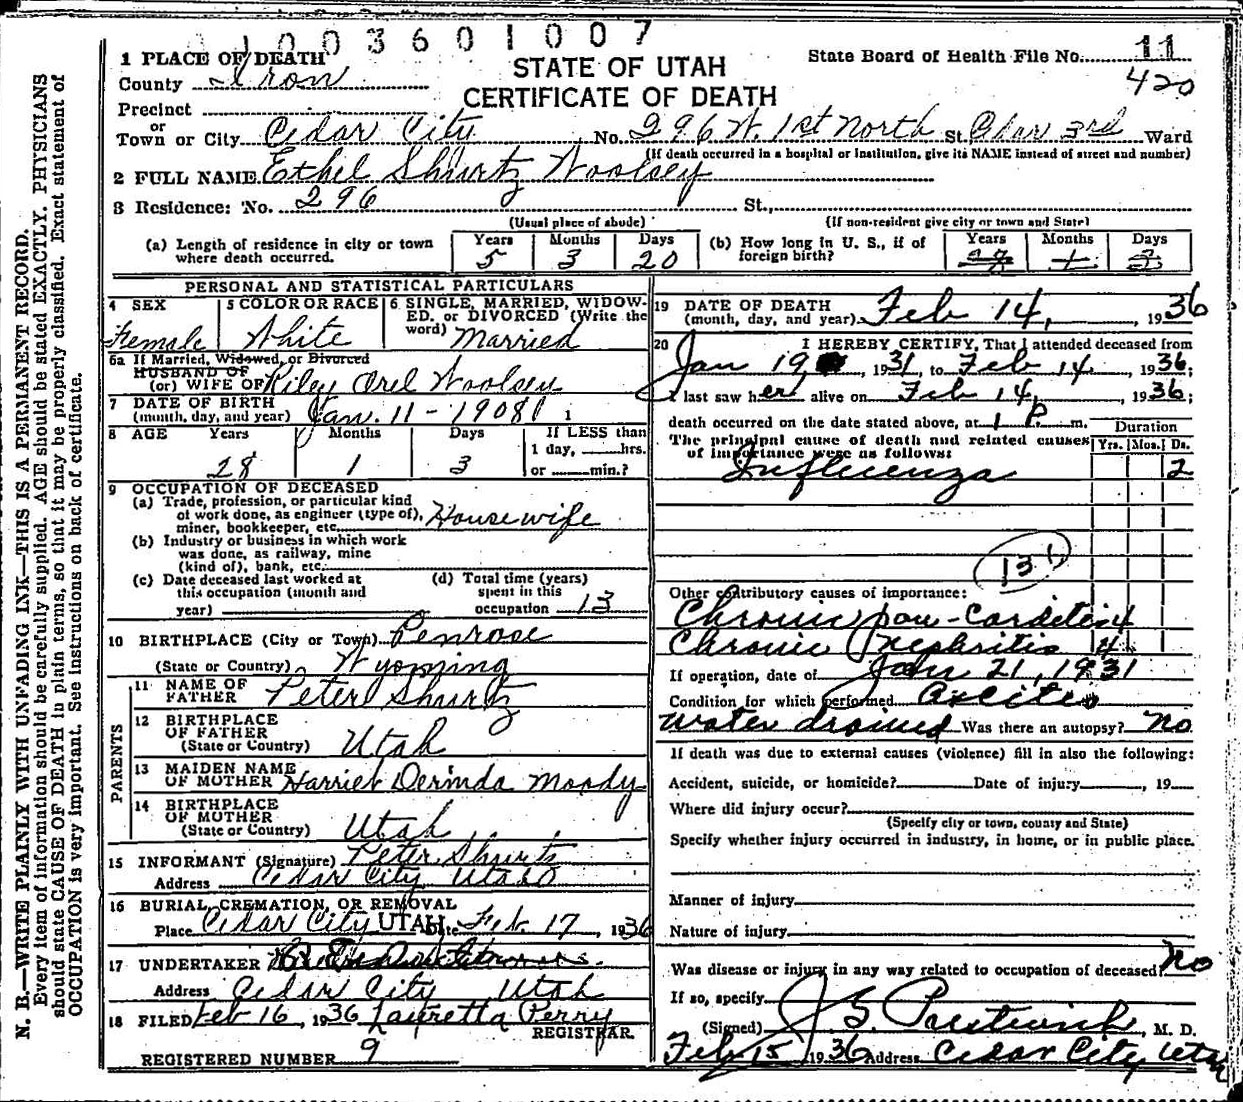 1003601007
1 PLACE OF DEATH
STATE OF UTAH
CERTIFICATE OF DEATH
State Board of Health File No. 11
420
County Iron
Precinct
or
Town or City Cedar City No. 296 W. 1st North St. Cedar 3rd Ward
(If death occurred in a hospital or institution, give its NAME instead of street and number)
2 FULL NAME Ethel Shurtz Woolsey
3 Residence: No. 296 St.,
(Usual place of abode) (If non-resident give city or town and State)
(a) Length of residence in city or town where death occurred. Years 5 Months 3 Days 20
(b) How long in U. S., if of foreign birth? Years Months Days
PERSONAL AND STATISTICAL PARTICULARS
4 SEX Female
5 COLOR OR RACE White
6 SINGLE, MARRIED, WIDOWED, or DIVORCED (Write the word) Married
6a If Married, Widowed, or Divorced
HUSBAND OF
(or) WIFE OF Riley Orel Woolsey
7 DATE OF BIRTH
(month, day, and year) Jan. 11 - 1908
8 AGE Years 28 Months 1 Days 3 If LESS than 1 day, hrs. or min.?
9 OCCUPATION OF DECEASED
(a) Trade, profession, or particular kind of work done, as engineer (type of), miner, bookkeeper, etc. Housewife
(b) Industry or business in which work was done, as railway, mine (kind of), bank, etc.
(c) Date deceased last worked at this occupation (month and year)
(d) Total time (years) spent in this occupation 13
10 BIRTHPLACE (City or Town) Penrose
(State or Country) Wyoming
PARENTS
11 NAME OF FATHER Peter Shurtz
12 BIRTHPLACE OF FATHER
(State or Country) Utah
13 MAIDEN NAME OF MOTHER Harriet Derinda Moody
14 BIRTHPLACE OF MOTHER
(State or Country) Utah
15 INFORMANT (Signature) Peter Shurtz
Address Cedar City Utah
16 BURIAL, CREMATION, OR REMOVAL
Place Cedar City UTAH Date Feb. 17, 1936
17 UNDERTAKER
Address Cedar City Utah
18 FILED Feb 16, 1936 Lauretta Perry
REGISTRAR
REGISTERED NUMBER 9
19 DATE OF DEATH
(month, day, and year) Feb 14, 1936
20 I HEREBY CERTIFY, That I attended deceased from
Jan 19, 1931, to Feb 14, 1936;
I last saw her alive on Feb 14, 1936;
death occurred on the date stated above, at 1 P. m.
The principal cause of death and related causes of importance were as follows:
Duration
Yrs. Mos. Ds.
Influenza 2
131
Other contributory causes of importance:
Chronic pan-Carditis 4
Chronic Nephritis 4
If operation, date of Jan 21, 1931
Condition for which performed Ascites
water drained Was there an autopsy? No
If death was due to external causes (violence) fill in also the following:
Accident, suicide, or homicide? Date of injury , 19
Where did injury occur?
(Specify city or town, county and State)
Specify whether injury occurred in industry, in home, or in public place.
Manner of injury
Nature of injury
Was disease or injury in any way related to occupation of deceased? No
If so, specify
(Signed) J S. Prestwich, M. D.
Feb 15 1936 Address Cedar City, Utah
N. B.—WRITE PLAINLY WITH UNFADING INK—THIS IS A PERMANENT RECORD.
Every item of information should be carefully supplied. AGE should be stated EXACTLY. PHYSICIANS
should state CAUSE OF DEATH in plain terms, so that it may be properly classified. Exact statement of
OCCUPATION is very important. See instructions on back of certificate.